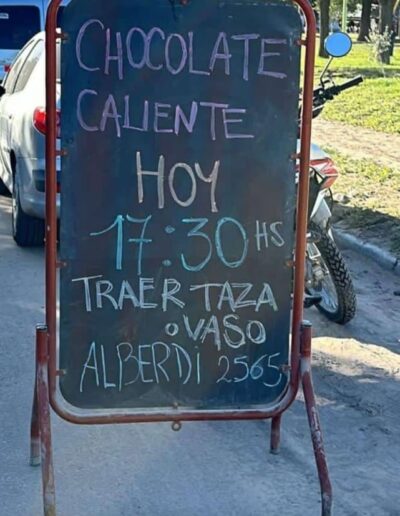 CHOCOLATE
CALIENTE
HOY
17:30 HS
TRAER TAZA
o VASO
ALBERDI 2565